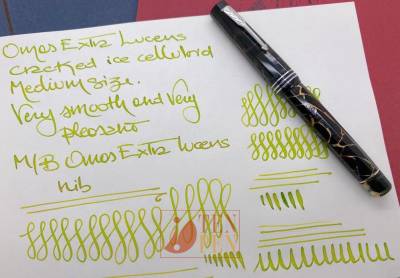 Omas Extra Lucens
cracked ice celluloid
Medium size.
Very smooth and Very
pleasant
M/B Omas Extra Lucens
nib
TEN
PEN